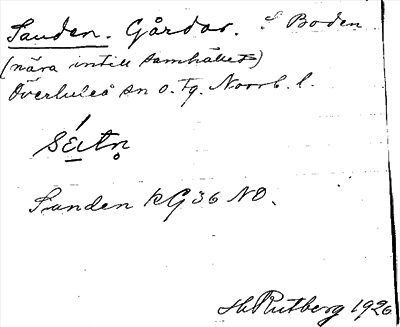 Sanden. Gårdar. I Boden
(nära intill samhället)
Överluleå sn o. Tg. Norrb. l.
Sanden RG 36 NO.
H. Rutberg 1926